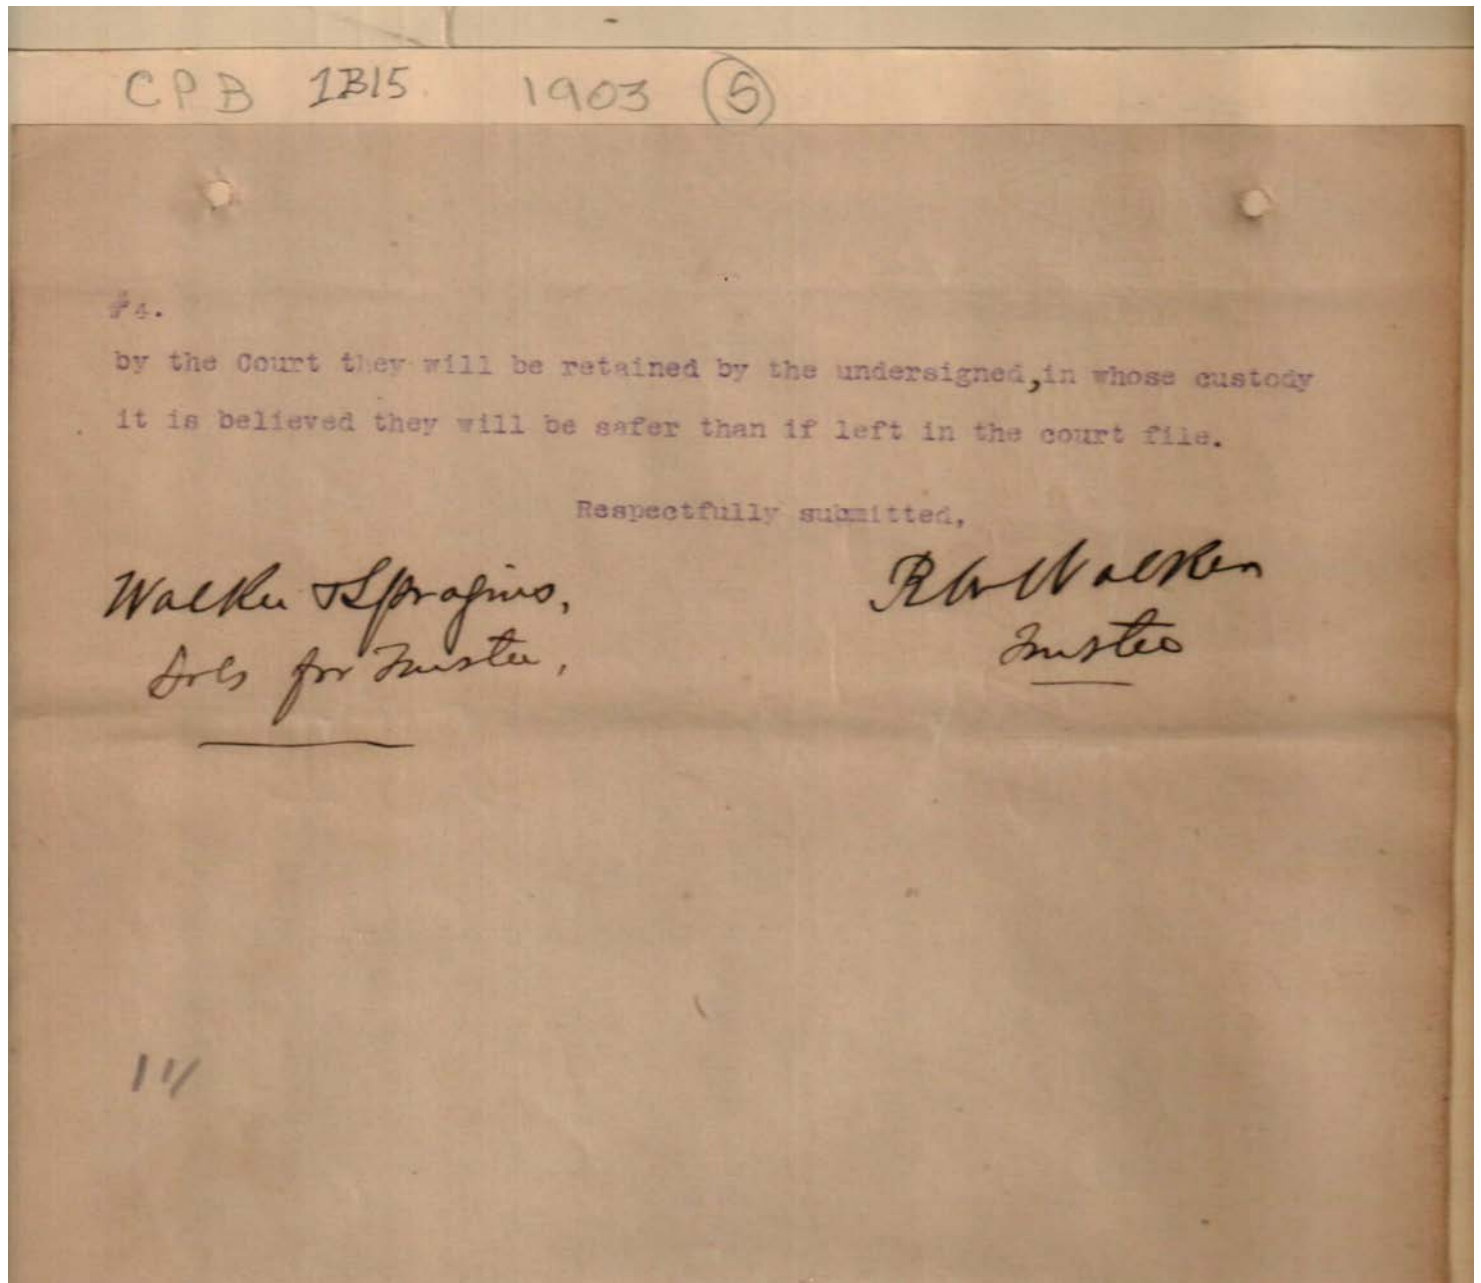 CPB 1B15 1903 5
#4.
by the Court they will be retained by the undersigned,in whose custody
it is believed they will be safer than if left in the court file.
Respectfully submitted,
Walker & Spragins,
Sols for Trustee,
RW Walker
Trustee